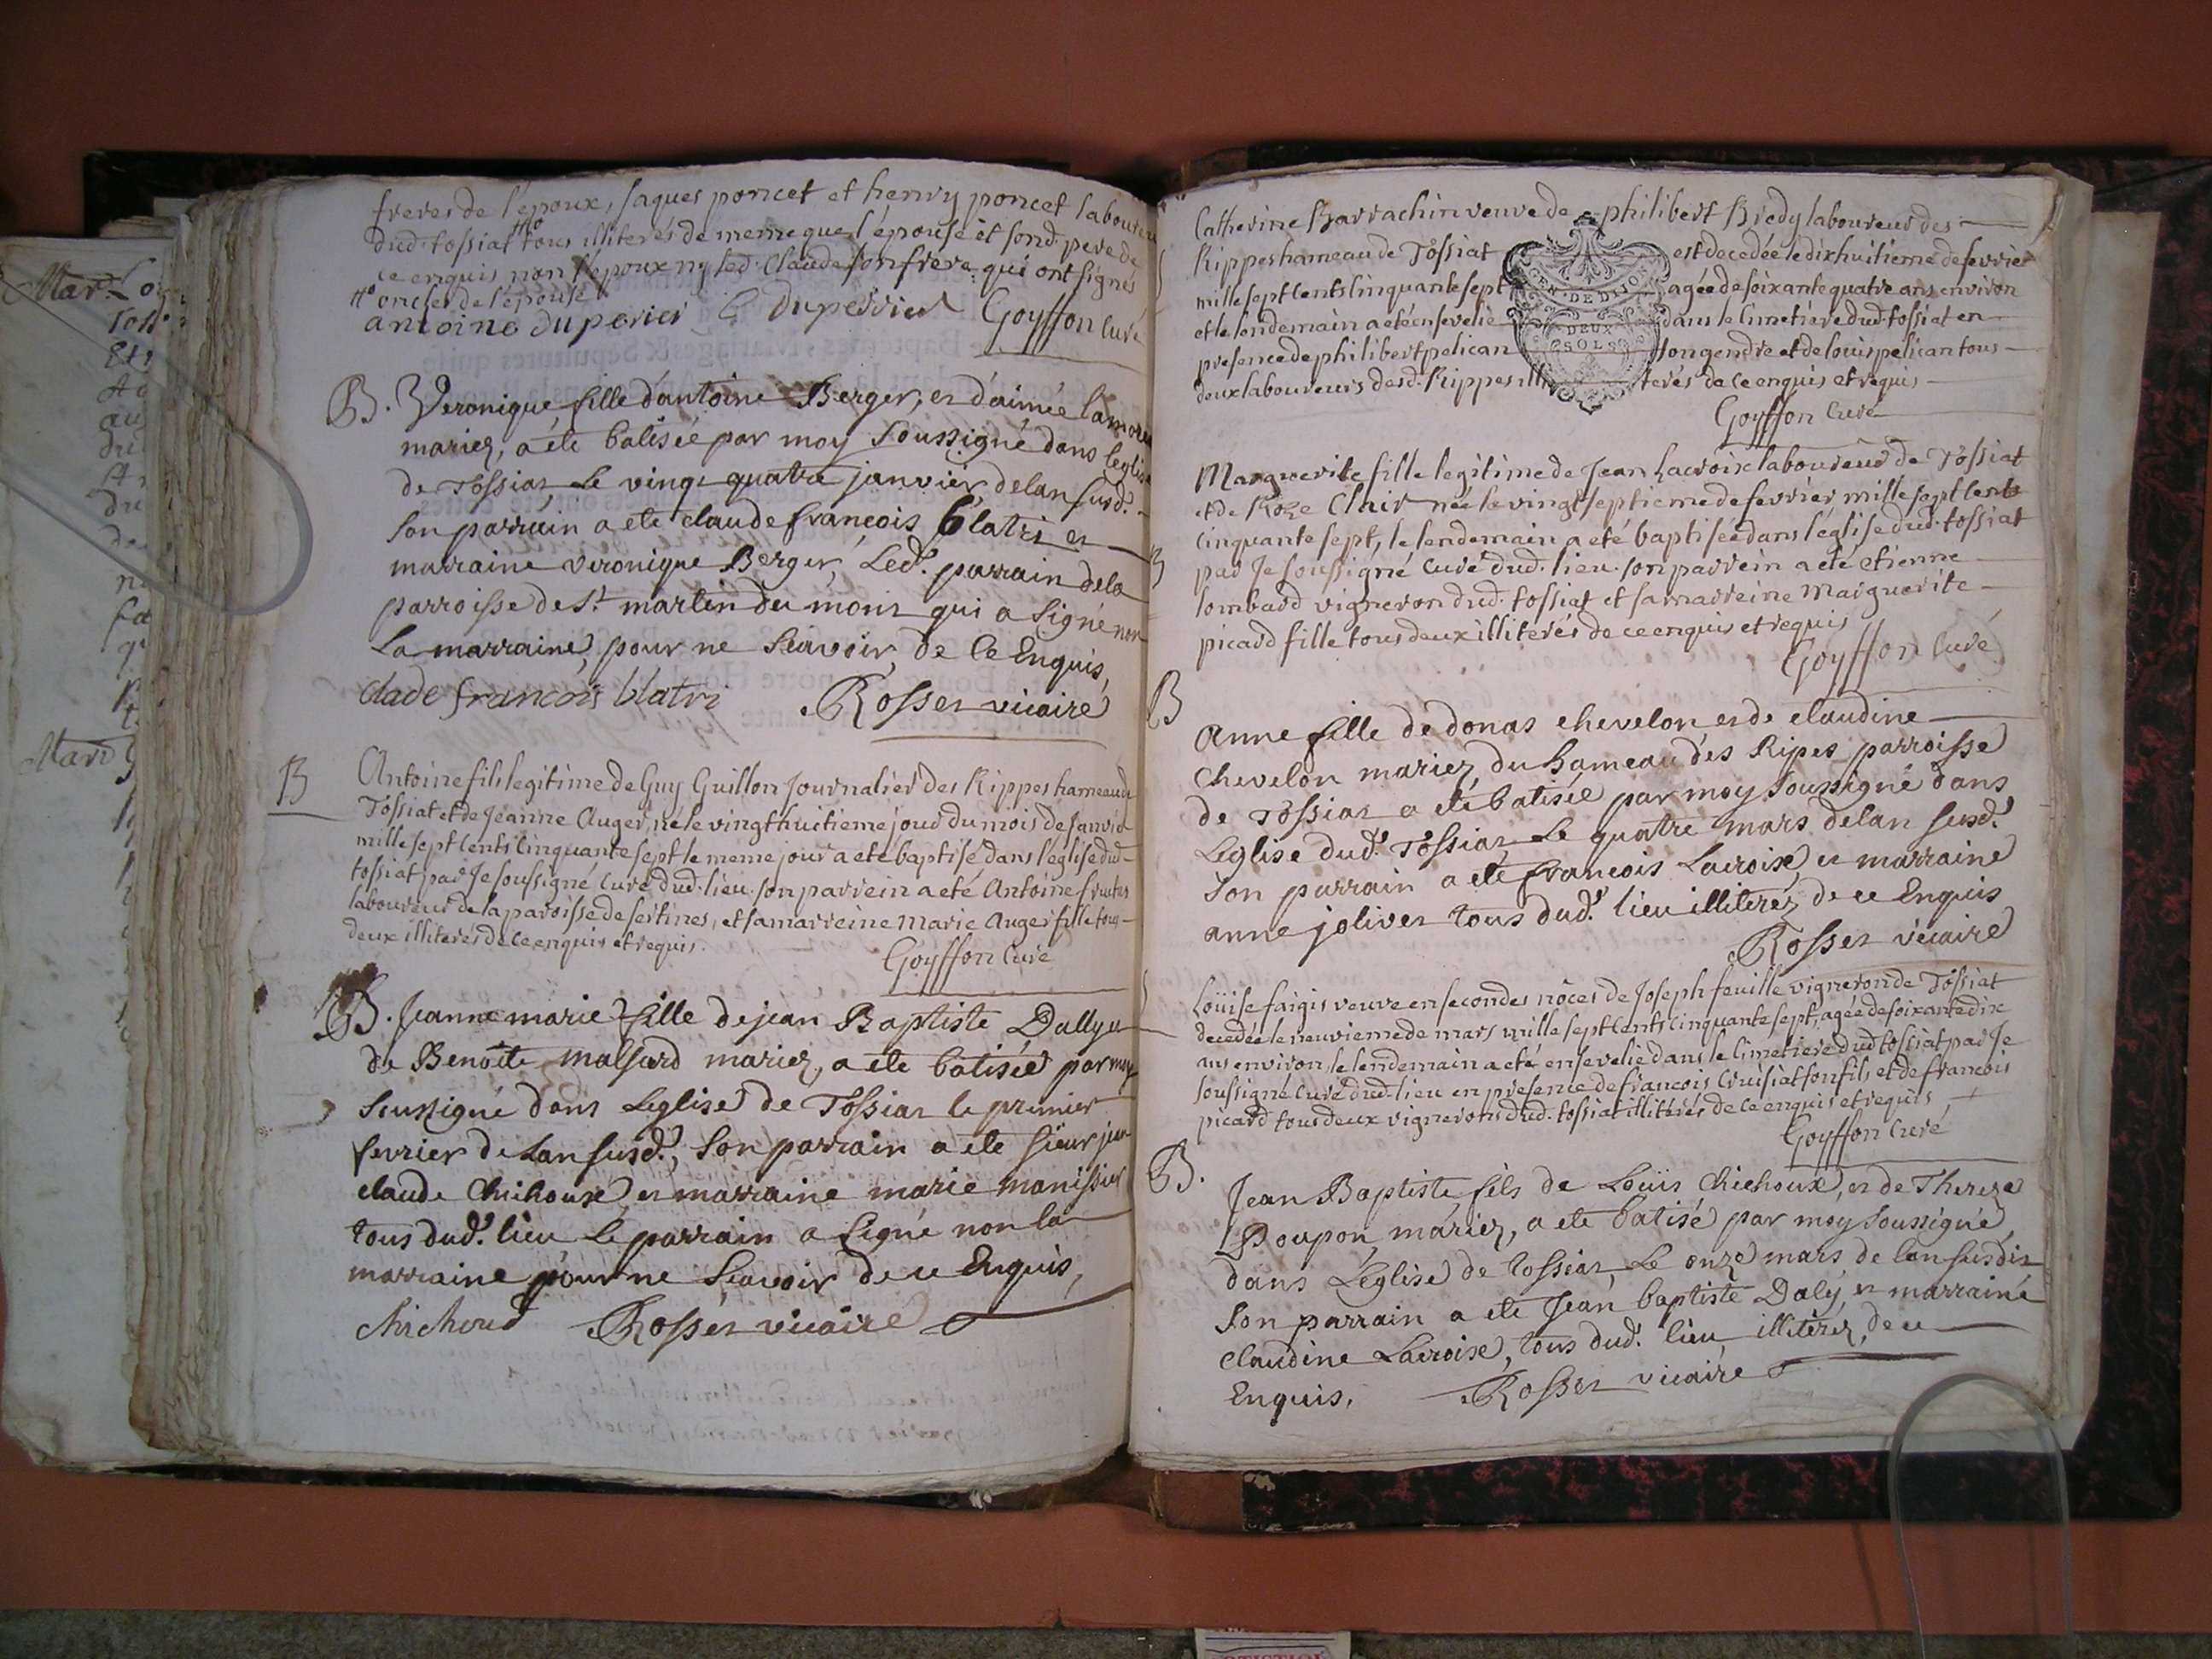 freres de l'époux, jaques poncet et henry poncet laboureu
dud. tossiat # tous illiterés de meme que l'épouse et sond. pere de
ce enquis non l'epoux ny led. Claude son frere qui ont signés
# oncles de l'épouse
antoine duperier C duperrier Goyffon Curé
B. Veronique fille d'antoine Berger, et d'aimée
mariez, a été batisée par moy soussigné dans leglise
de Tossiat Le vingt quatre janvier delan susd.
son parrain a ete claude françois blatri et
marraine veronique Berger, Led. parrain dela
parroisse de St. martin du mont qui a signé non
La marraine pour ne scavoir, de Ce Enquis,
clade francois blatri Rosset vicaire
B
Antoine fils legitime de Guy Guillon Journalier des Rippes hameau de
Tossiat et de Jeanne Auger, né le vingt huitieme jour du mois de Janvier
mille sept Cents Cinquante sept le meme jour a eté baptisé dans l'eglise dud.
tossiat par Je soussigné Curé dud. lieu. son parrein a eté Antoine
laboureur de la paroisse de sertines, et sa marreine Marie Auger fille tous
deux illiterés de ce enquis et requis.
Goyffon Curé
B. Jeanne marie fille de jean Baptiste Dally et
de Benoite malsard mariez, a ete batisée par moy
soussigné dans Leglise de Tossiat le premier
fevrier de Lan susd., son parrain a ete sieur jean
claude Chichoux et marraine marie manissier
tous dud. lieu le parrain a signé non la
marraine pour ne scavoir de ce Enquis,
chichoud Rosset vicaire
Catherine Barrachin veuve de philibert Bredy laboureur des
Rippes hameau de Tossiat est decedée le dix huitieme de fevrier
mille sept Cents Cinquante sept agée de soixante quatre ans environ
et le lendemain a eté ensevelie dans le Cimetiere dud. tossiat en
presence de philibert pelican son gendre et de louis pelican tous
deux laboureurs desd. Rippes illiterés de ce enquis et requis
GEN. DE DIJON
DEUX
SOLS
Goyffon Curé
Marguerite fille legitime de Jean Lacroix laboureur de Tossiat
et de Roze Clair née le vingt septieme de fevrier mille sept Cents
B
Cinquante sept, le lendemain a eté baptisée dans l'église dud. tossiat
par Je soussigné Curé dud. lieu. son parrein a eté etienne
lombard vigneron dud. tossiat et sa marreine Marguerite
picard fille tous deux illiterés de ce enquis et requis
Goyffon Curé
B
Anne fille de donat chevelon et de claudine
Chevelon mariez du hameau des Ripes parroisse
de Tossiat a été batisée par moy soussigné dans
Leglise dud. Tossiat Le quatre mars delan susd.
son parrain a ete francois Lacroix et marraine
anne jolivet tous dud. lieu illiterez de ce Enquis
Rosset vicaire
Loüise faigis veuve en secondes nôces de Joseph feuille vigneron de Tossiat
decedée le neuvieme de mars mille sept Cents Cinquante sept, agée de soixante dix
ans environ, le lendemain a eté ensevelie dans le Cimetiere dud. tossiat par Je
soussigné Curé dud. lieu en presence de francois Cruisiat son fils et de francois
picard tous deux vignerons dud. tossiat illiterés de ce enquis et requis
Goyffon Curé
B.
Jean Baptiste fils de Loüis Chichoux, et de Thereze
Poupon mariez, a ete batisé par moy soussigné
dans L'eglise de Tossiat, Le onze mars de lan susdit
son parrain a ete Jean baptiste Daly et marraine
Claudine Lacroix, tous dud. lieu illiterez de ce
Enquis. Rosset vicaire